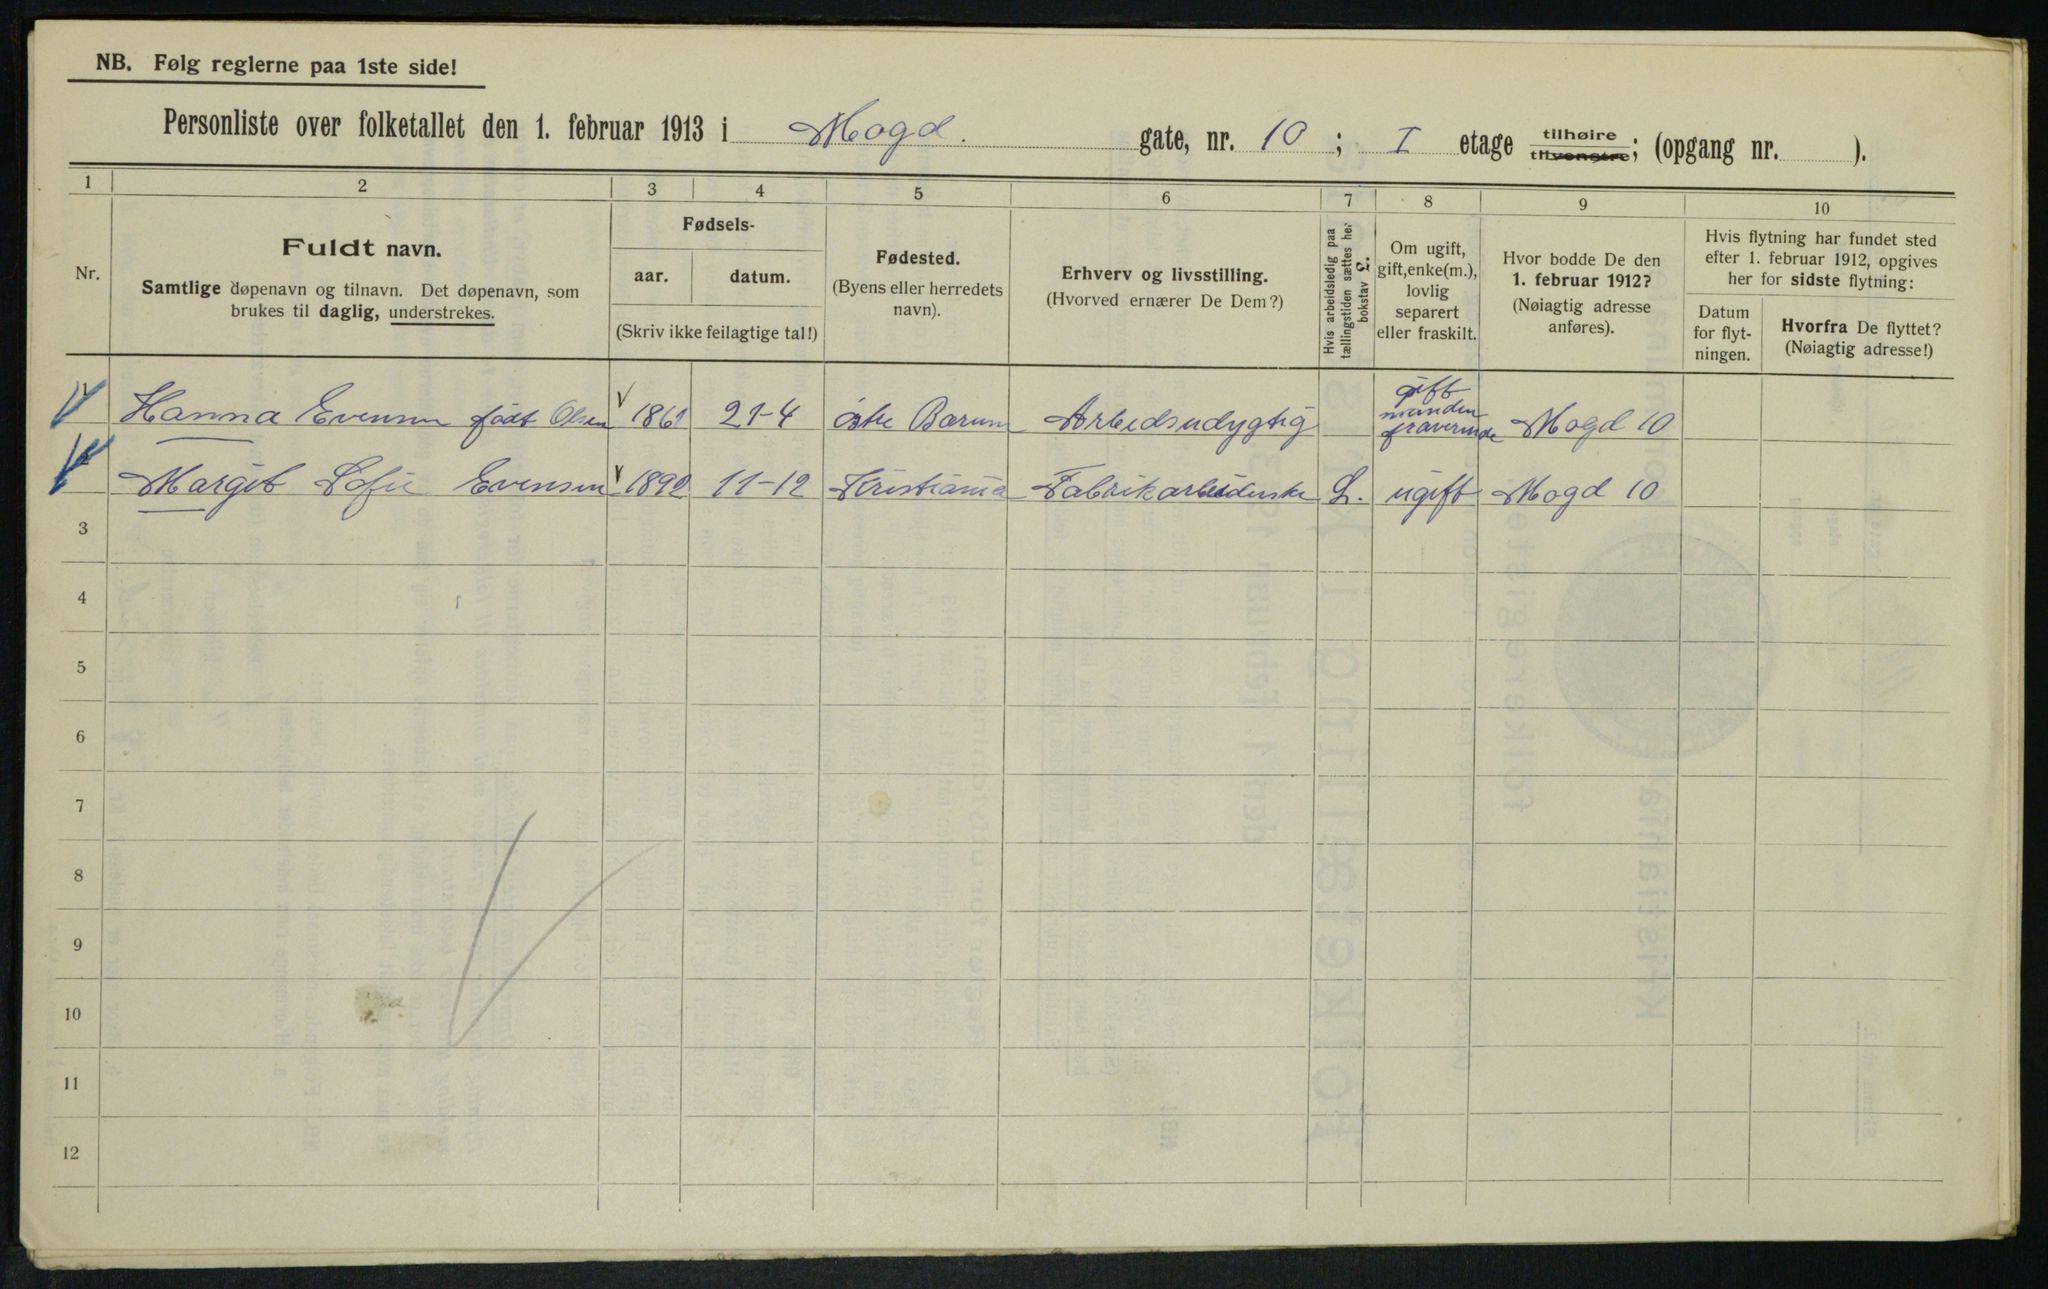 NB. Følg reglerne paa 1ste side!
Personliste over folketallet den 1. februar 1913 i Mogd. gate, nr. 10 ; I etage tilhøire tilvenstre; (opgang nr. ).
1 2 3 4 5 6 7 8 9 10
Nr.
Fuldt navn.
Samtlige døpenavn og tilnavn. Det døpenavn, som
brukes til daglig, understrekes.
Fødsels-
aar. datum.
(Skriv ikke feilagtige tal!)
Fødested.
(Byens eller herredets
navn).
Erhverv og livsstilling.
(Hvorved ernærer De Dem?)
Hvis arbeidsledig paa
tællingstiden sættes her
bokstav L.
Om ugift,
gift, enke(m.),
lovlig
separert
eller fraskilt.
Hvor bodde De den
1. februar 1912?
(Nøiagtig adresse
anføres).
Hvis flytning har fundet sted
efter 1. februar 1912, opgives
her for sidste flytning:
Datum
for flyt-
ningen.
Hvorfra De flyttet?
(Nøiagtig adresse!)
1 Hanna Evensen født Olsen 1861 21-4 østre Bærum Arbeidsudygtig gift manden fraverende Mogd 10
2 Margit Sofie Evensen 1892 11-12 Kristiania Fabrikarbeiderske L. ugift Mogd 10
3
4
5
6
7
8
9
10
11
12